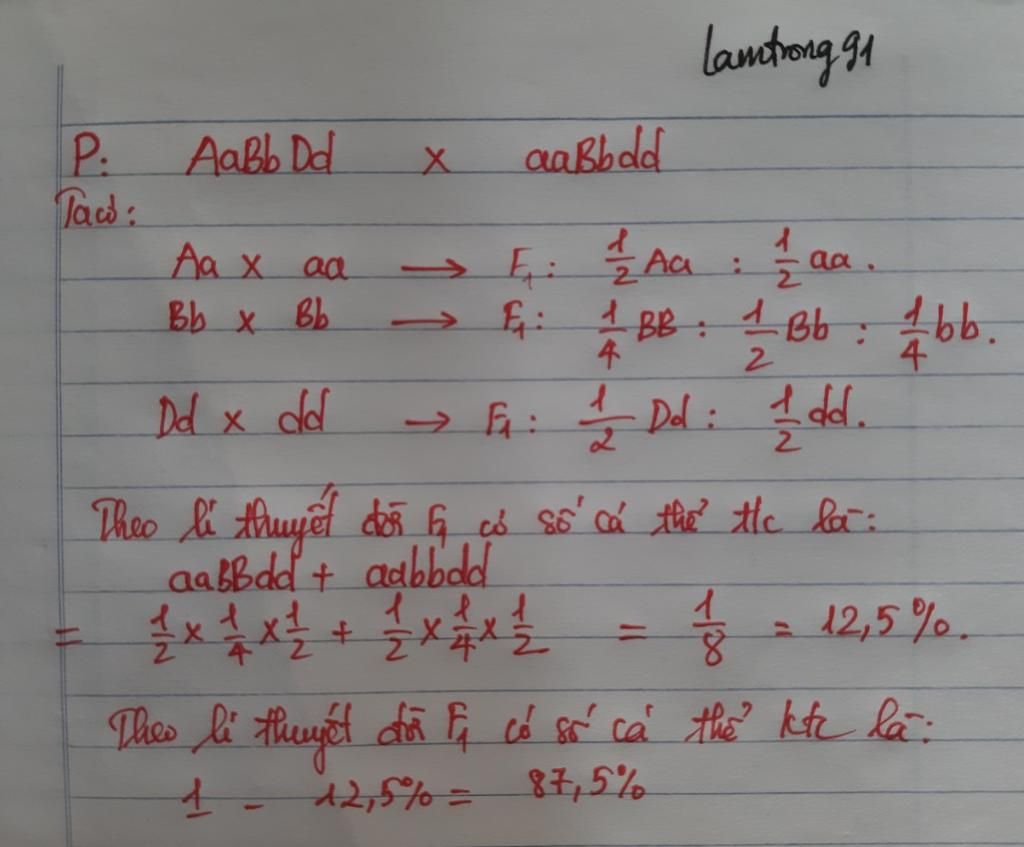 lamtrong91
P: AaBbDd x aaBbdd
Ta có:
Aa x aa → F1: 1/2 Aa : 1/2 aa.
Bb x Bb → F1: 1/4 BB : 1/2 Bb : 1/4 bb.
Dd x dd → F1: 1/2 Dd : 1/2 dd.
Theo lí thuyết đời F1 có số cá thể tc là:
aaBBdd + aabbdd
= 1/2 x 1/4 x 1/2 + 1/2 x 1/4 x 1/2 = 1/8 = 12,5%.
Theo lí thuyết đời F1 có số cá thể ktc là:
1 - 12,5% = 87,5%